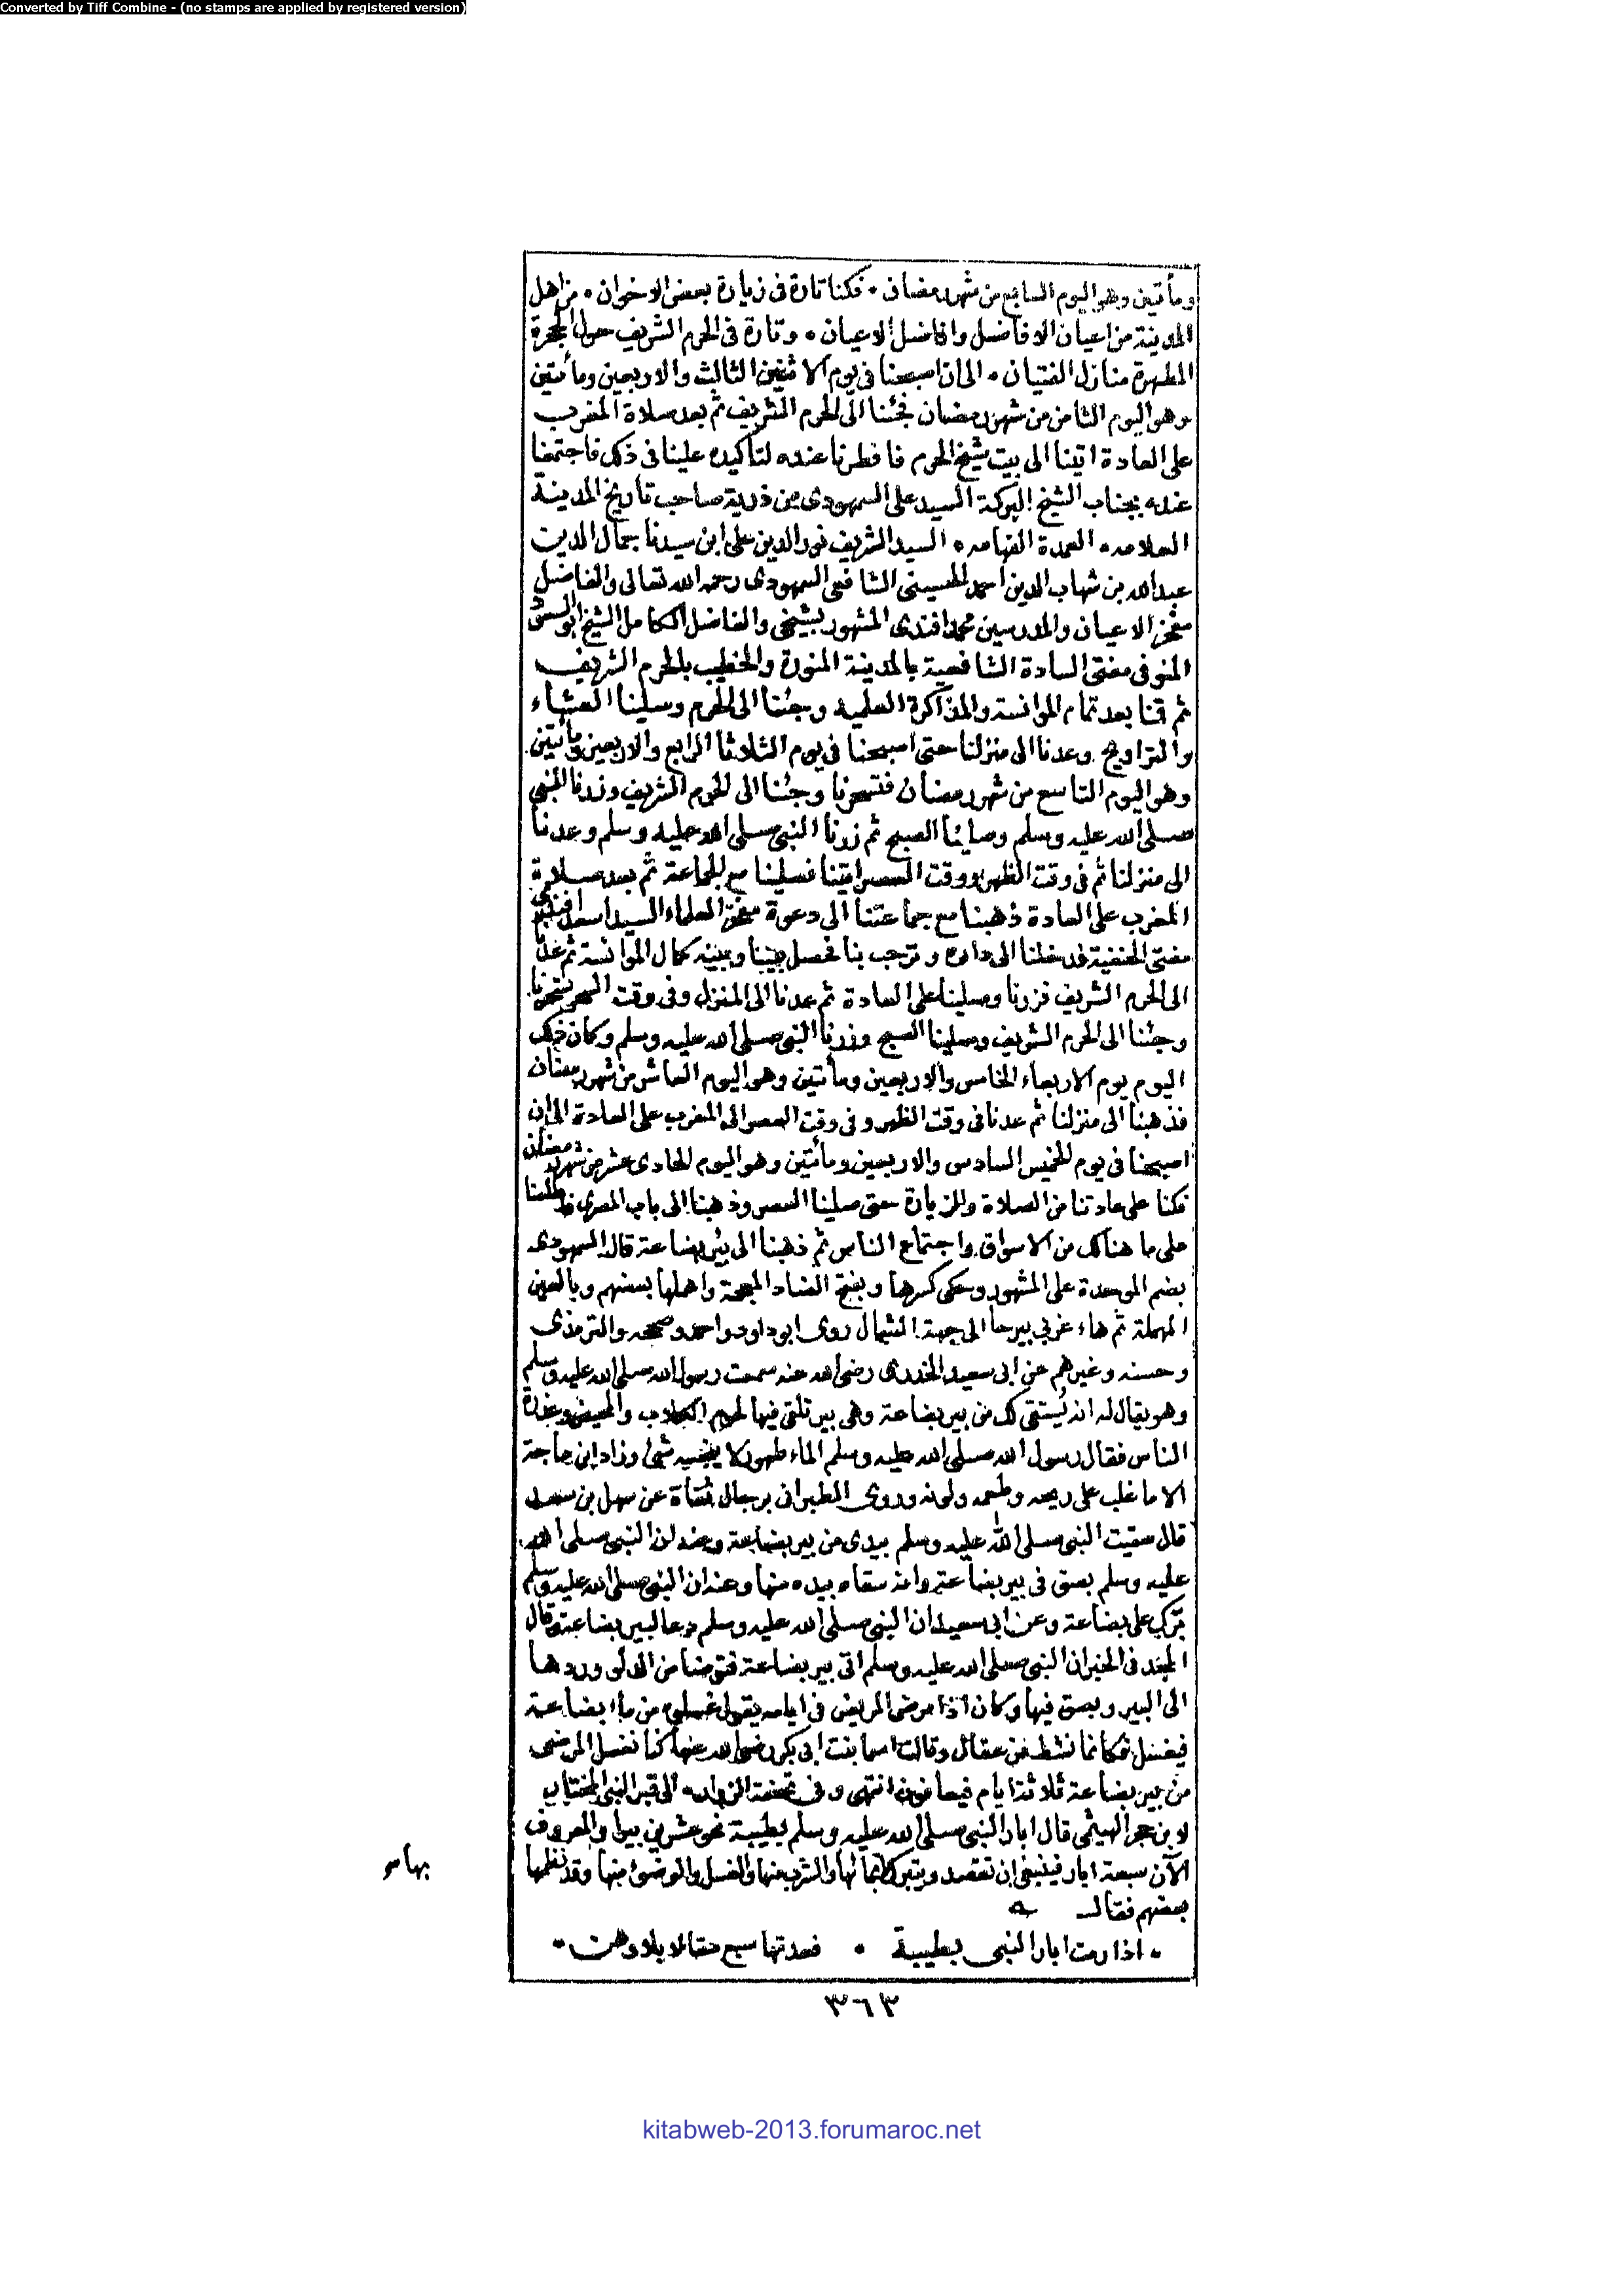 Converted by Tiff Combine - (no stamps are applied by registered version)
ومأتين وهو اليوم السابع من شهر رمضان • فكنا تارة في زيارة بعض الاخوان • من اهل
المدينة من اعيان الافاضل وافاضل الاعيان • وتارة في الحرم الشريف حول الحجرة
المطهرة منازل الفتيان • الى ان اصبحنا في يوم الاثنين الثالث والاربعين ومأتين
وهو اليوم الثامن من شهر رمضان فجئنا الى الحرم الشريف ثم بعد صلاة المغرب
على العادة اتينا الى بيت شيخ الحرم فافطرنا عنده لتأكيده علينا في ذلك فاجتمعنا
عنده بجناب الشيخ البركة السيد على السمهودى من ذرية صاحب تاريخ المدينة
العلامه • العمدة الفهامه • السيد الشريف نور الدين على ابن سيدنا جمال الدين
عبد الله بن شهاب الدين احمد الحسينى الشافعى السمهودى رحمه الله تعالى والفاضل
مفخر الاعيان والمدرسين محمد افندى المشهور بشيخى والفاضل الكامل الشيخ ابو السعود
المنوفى مفتى السادة الشافعية بالمدينة المنورة والخطيب بالحرم الشريف
ثم قمنا بعد تمام الموانسة والمذاكرة العلميه وجئنا الى الحرم وصلينا العشاء
والتراويح وعدنا الى منزلنا حتى اصبحنا في يوم الثلاثا الرابع والاربعين ومأتين
وهو اليوم التاسع من شهر رمضان فتسحرنا وجئنا الى الحرم الشريف وزرنا النبي
صلى الله عليه وسلم وصلينا الصبح ثم زرنا النبي صلى الله عليه وسلم وعدنا
الى منزلنا ثم في وقت الظهر ووقت العصر اتينا فصلينا مع الجماعة ثم بعد صلاة
المغرب على العادة ذهبنا مع جماعتنا الى دعوة مفخر العلماء السيد اسعد افندى
مفتى الحنفية فدخلنا الى داره وترحب بنا فحصل بيننا وبينه كمال الموانسة ثم عدنا
الى الحرم الشريف فزرنا وصلينا على العادة ثم عدنا الى المنزل وفى وقت السحر تسحرنا
وجئنا الى الحرم الشريف وصلينا الصبح وزرنا النبي صلى الله عليه وسلم وكان ذلك
اليوم يوم الاربعاء الخامس والاربعين ومأتين وهو اليوم العاشر من شهر رمضان
فذهبنا الى منزلنا ثم عدنا في وقت الظهر وفى وقت العصر الى المغرب على العادة الى ان
اصبحنا في يوم الخميس السادس والاربعين ومأتين وهو اليوم الحادى عشر من شهر رمضان
فكنا على عادتنا من الصلاة والزيارة حتى صلينا العصر وذهبنا الى باب المصرى فاطلعنا
على ما هنالك من الاسواق واجتماع الناس ثم ذهبنا الى بئر بضاعة قال السمهودى
بضم الموحدة على المشهور وحكى كسرها وبفتح الضاد المعجمة واهملها بعضهم وبالعين
المهملة ثم هاء غربي بيرحا الى جهة الشمال روى ابو داود واحمد وصححه والترمذى
وحسنه وغيرهم عن ابى سعيد الخدرى رضى الله عنه سمعت رسول الله صلى الله عليه وسلم
وهو يقال له انه يُستقى لك من بير بضاعة وهى بير تلقى فيها لحوم الكلاب والمحيض وعذرة
الناس فقال رسول الله صلى الله عليه وسلم الماء طهور لا ينجسه شئ وزاد ابن ماجة
الا ما غلب على ريحه وطعمه ولونه وروى الطبرانى برجال ثقاة عن سهل بن سعد
قال سقيت النبي صلى الله عليه وسلم بيدى من بير بضاعة وعنه ان النبي صلى الله
عليه وسلم بصق في بير بضاعة وانه سقاه بيده منها وعنه ان النبي صلى الله عليه وسلم
برّك على بضاعة وعن ابى سعيد ان النبي صلى الله عليه وسلم دعا لبير بضاعة وقال
المجد في الخبر ان النبي صلى الله عليه وسلم اتى بير بضاعة فتوضا من الدلو وردها
الى البير وبصق فيها وكان اذا مرض المريض في ايامه يقول غسلوه من ماء بضاعة
فيغسل فكانما نشط من عقال وقالت اسما بنت ابى بكر رضى الله عنها كنا نغسل المرضى
من بير بضاعة ثلاثة ايام فيعافون انتهى وفى تحفة الزوار • الى قبر النبي المختار
لابن حجر الهيثمى قال ابار النبي صلى الله عليه وسلم بطيبة نحو عشرين بيرا والمعروف
الآن سبعة ابار فينبغى ان تقصد ويتبرك بمائها والشرب منها والغسل والوضوء منها وقد نظمها
بعضهم فقال
• اذا رمت ابار النبي بطيبة • فعدتها سبع مقالا بلا وهن •
٣٦٣
kitabweb-2013.forumaroc.net